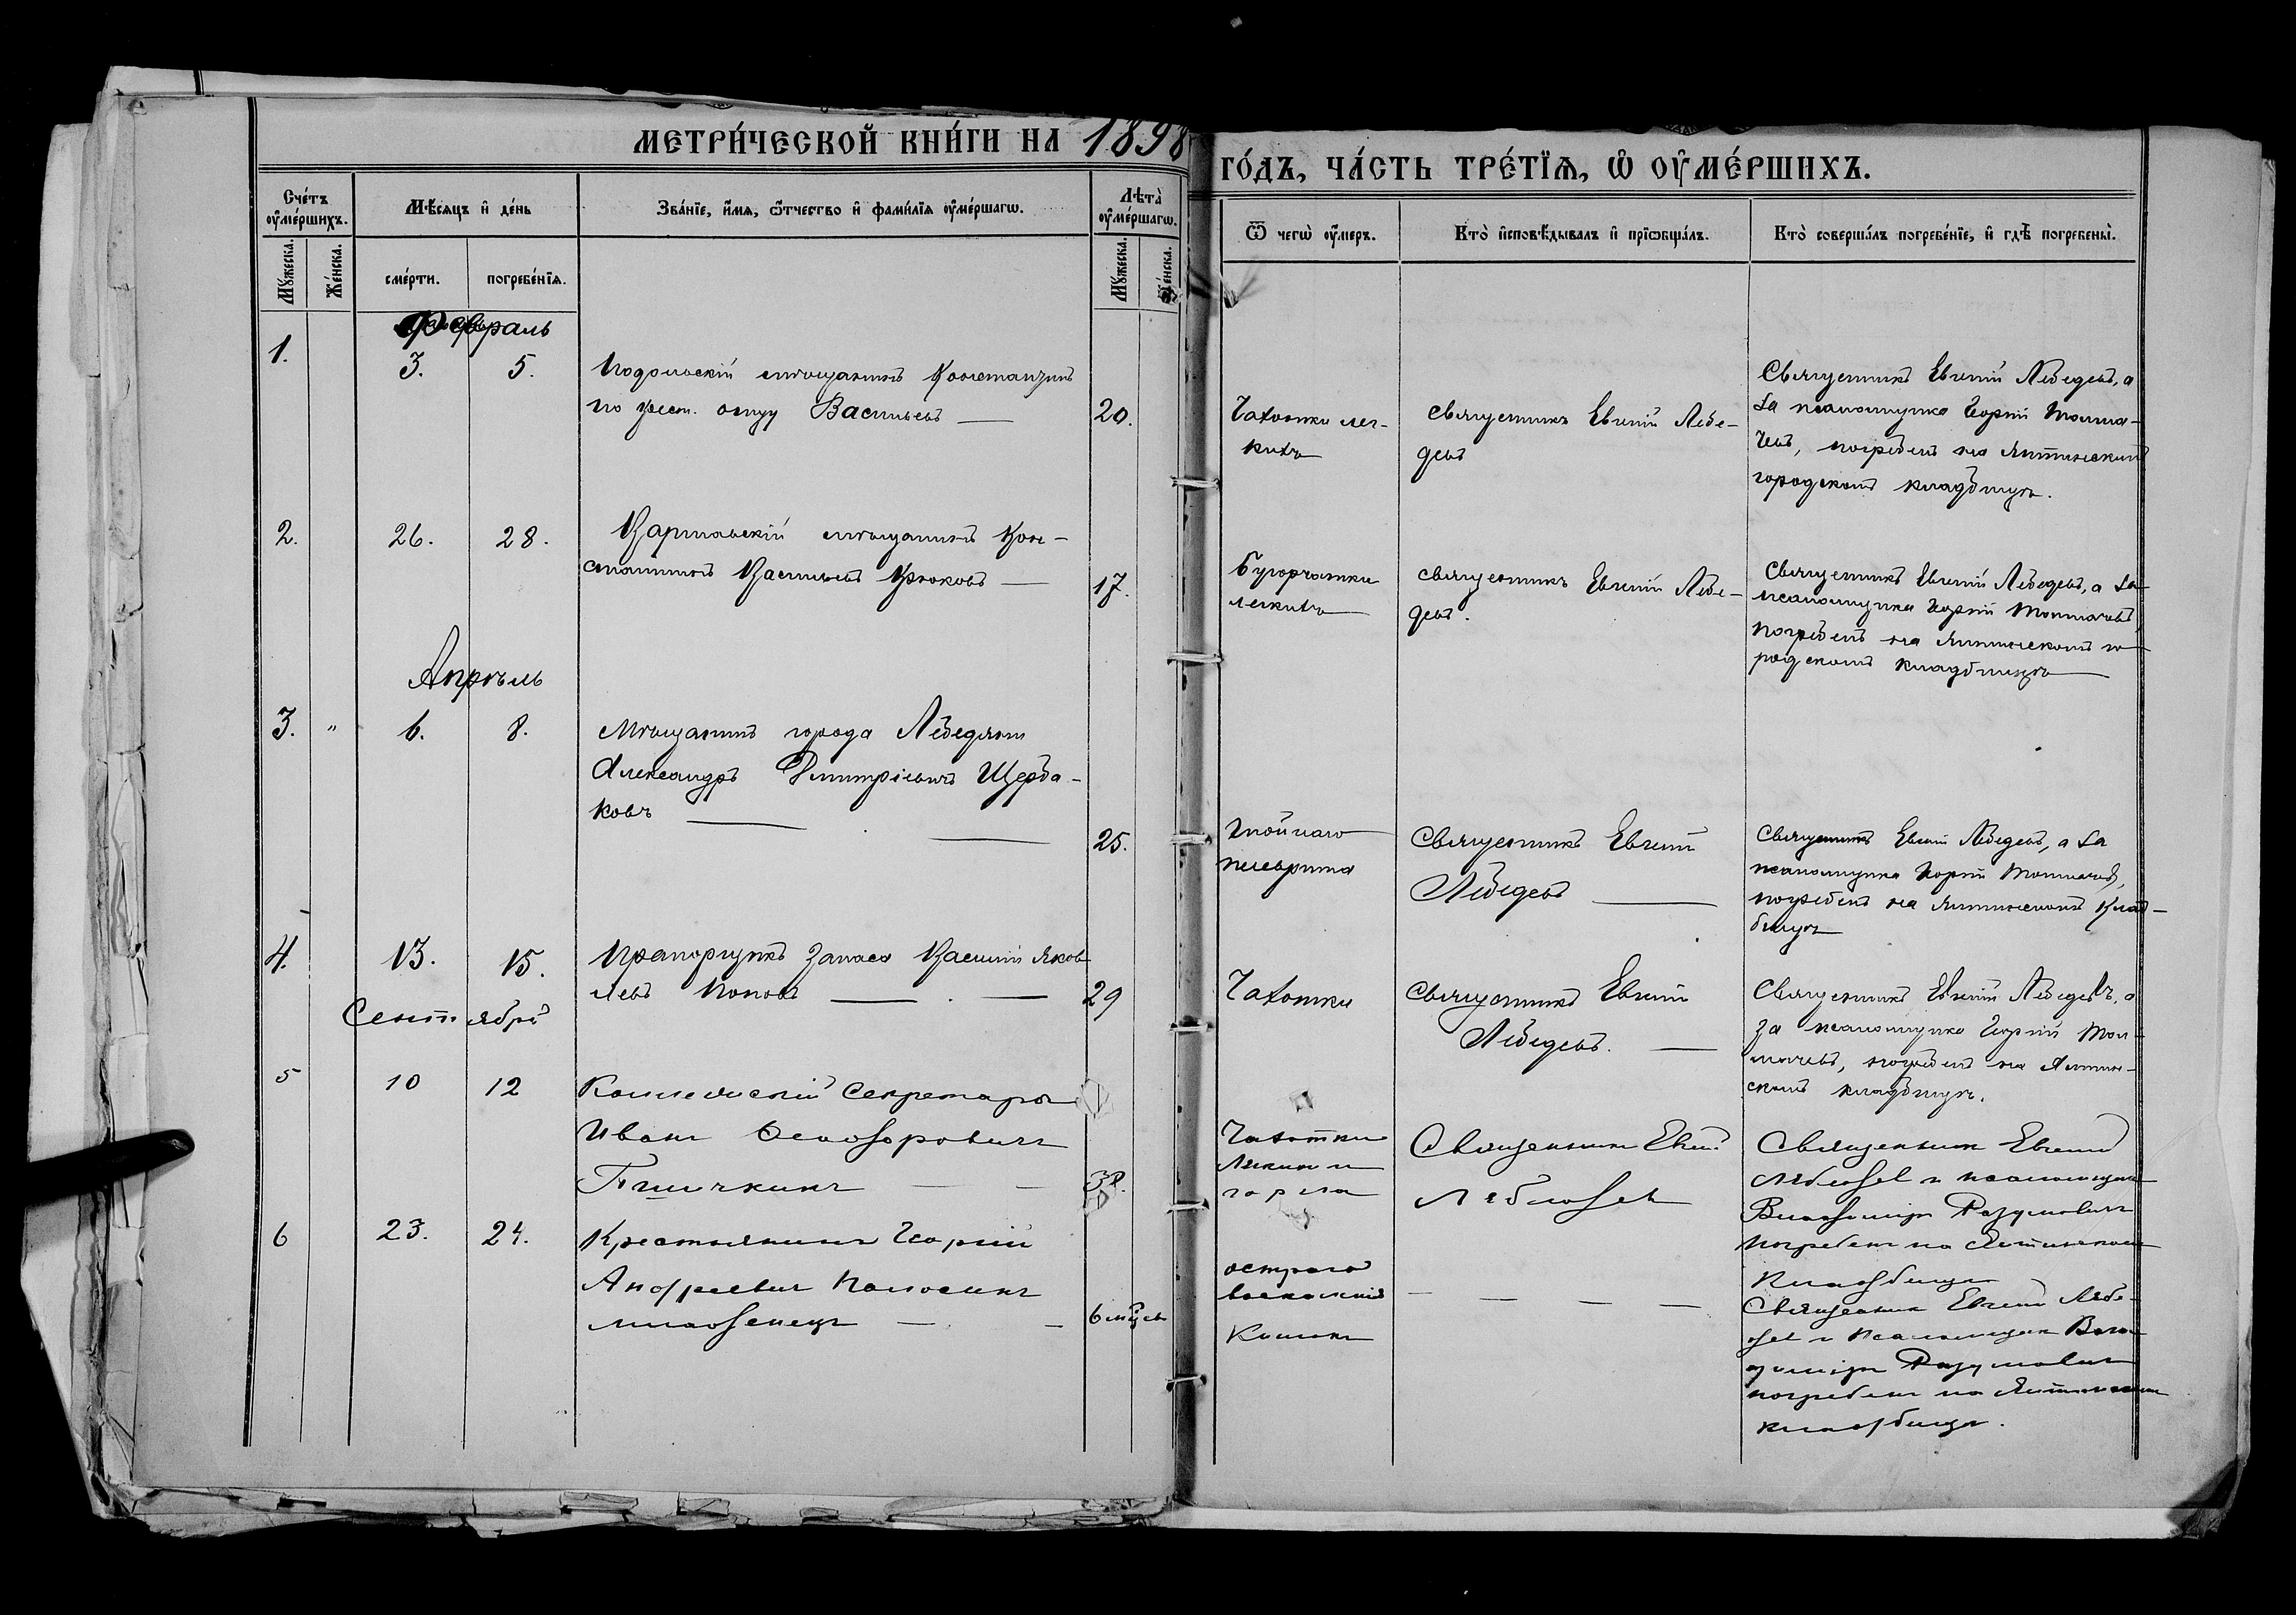 МЕТРИ́ЧЕСКОЙ КНИ́ГИ НА 1898
ГО́ДЪ, ЧА́СТЬ ТРЕ́ТІѦ, Ѡ҆ ОУ҆МЕ́РШИХЪ.
Счетъ оу҆ме́ршихъ.
Мꙋжеска.
Же́нска.
Мѣ́сяцъ и҆ де́нь
сме́рти.
погребе́нїѧ.
Зва́нїе, и҆́мѧ, ѻ҆́тчество и҆ фами́лїѧ оу҆ме́ршагѡ.
Лѣта̀ оу҆ме́ршагѡ.
Мꙋжеска.
Же́нска.
Ѿ чегѡ̀ оу҆́меръ.
Кто̀ и҆сповѣ́дывалъ и҆ прїѡбща́лъ.
Кто̀ соверша́лъ погребе́нїе, и҆ гдѣ̀ погребены̀.
Февраль
1.
3.
5.
Подольскій мѣщанинъ Константинъ
по крест. отцу Васильевъ
20.
Чахотки лег-
кихъ
Священникъ Евгеній Лебе-
девъ
Священникъ Евгеній Лебедевъ, а
за псаломщика Георгій Толма-
чевъ, погребенъ на Ялтинскомъ
городскомъ кладбищѣ.
2.
26.
28.
мѣщанинъ Кон-
стантинъ Васильевъ Крюковъ
17.
Бугорчатки
легкихъ
Священникъ Евгеній Лебе-
девъ.
Священникъ Евгеній Лебедевъ, а за
псаломщика Георгій Толмачевъ,
погребенъ на Ялтинскомъ го-
родскомъ кладбищѣ
Апрѣль
3.
"
6.
8.
Мѣщанинъ города Лебедяни
Александръ Дмитріевичъ Щерба-
ковъ
25.
Гнойнаго
плеврита
Священникъ Евгеній
Лебедевъ
Священникъ Евгеній Лебедевъ, а за
псаломщика Георгій Толмачевъ,
погребенъ на Ялтинскомъ клад-
бищѣ
4.
13.
15.
Прапорщикъ запаса Василій Яков-
левъ Поповъ
29
Чахотки
Священникъ Евгеній
Лебедевъ.
Священникъ Евгеній Лебедевъ, а
за псаломщика Георгій Тол-
мачевъ, погребенъ на Ялтин-
скомъ кладбищѣ.
Сентябрь
5
10
12
Коллежскій Секретарь
Иванъ Ѳеодоровичъ
Чахотки
горла
Священникъ Евген.
Лебедевъ
Священникъ Евгеній
Лебедевъ и псаломщикъ
Владиміръ Разумовичъ
погребенъ на Ялтинскомъ
кладбищѣ
6
23.
24.
Крестьянинъ Георгій
Андреевичъ Колосинъ
младенецъ
6 мѣсц
остраго
воспаленія
кишекъ
Священникъ Евгеній Лебе-
девъ и псаломщикъ Вла-
диміръ Разумовичъ
погребенъ на Ялтинскомъ
кладбищѣ.